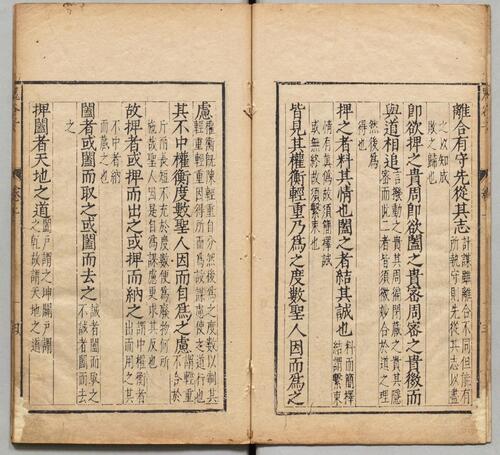 離合有守先從其志計謀雖離合不同但能有
所執守則先從其志以盡
之以知成
敗之歸也
即欲捭之貴周即欲闔之貴密周密之貴微而
與道相追言撥動之貴其周徧閉藏之貴其隱
密而此二者皆須微妙合於道之理
然後爲
得也
捭之者料其情也闔之者結其誠也料而簡擇
結謂繫束
情有真僞故須簡擇誠
或無終故須繫束也
皆見其權衡輕重乃爲之度數聖人因而爲之
慮權衡既陳輕重自分然後爲之度數以制其
輕重輕重因得所而爲設謀慮使之道行也
其不中權衡度數聖人因而自爲之慮謂輕重
不合於
斤兩長短不充於度數便爲廢物何所
施故聖人因是自爲謀慮更求其反也
故捭者或捭而出之或捭而納之謂中權衡者
出而用之其
不中者納
而藏之也
闔者或闔而取之或闔而去之誠者闔而取之
不誠者闔而去
之
捭闔者天地之道闔戶謂之坤闢戶謂
之乾故謂天地之道
四